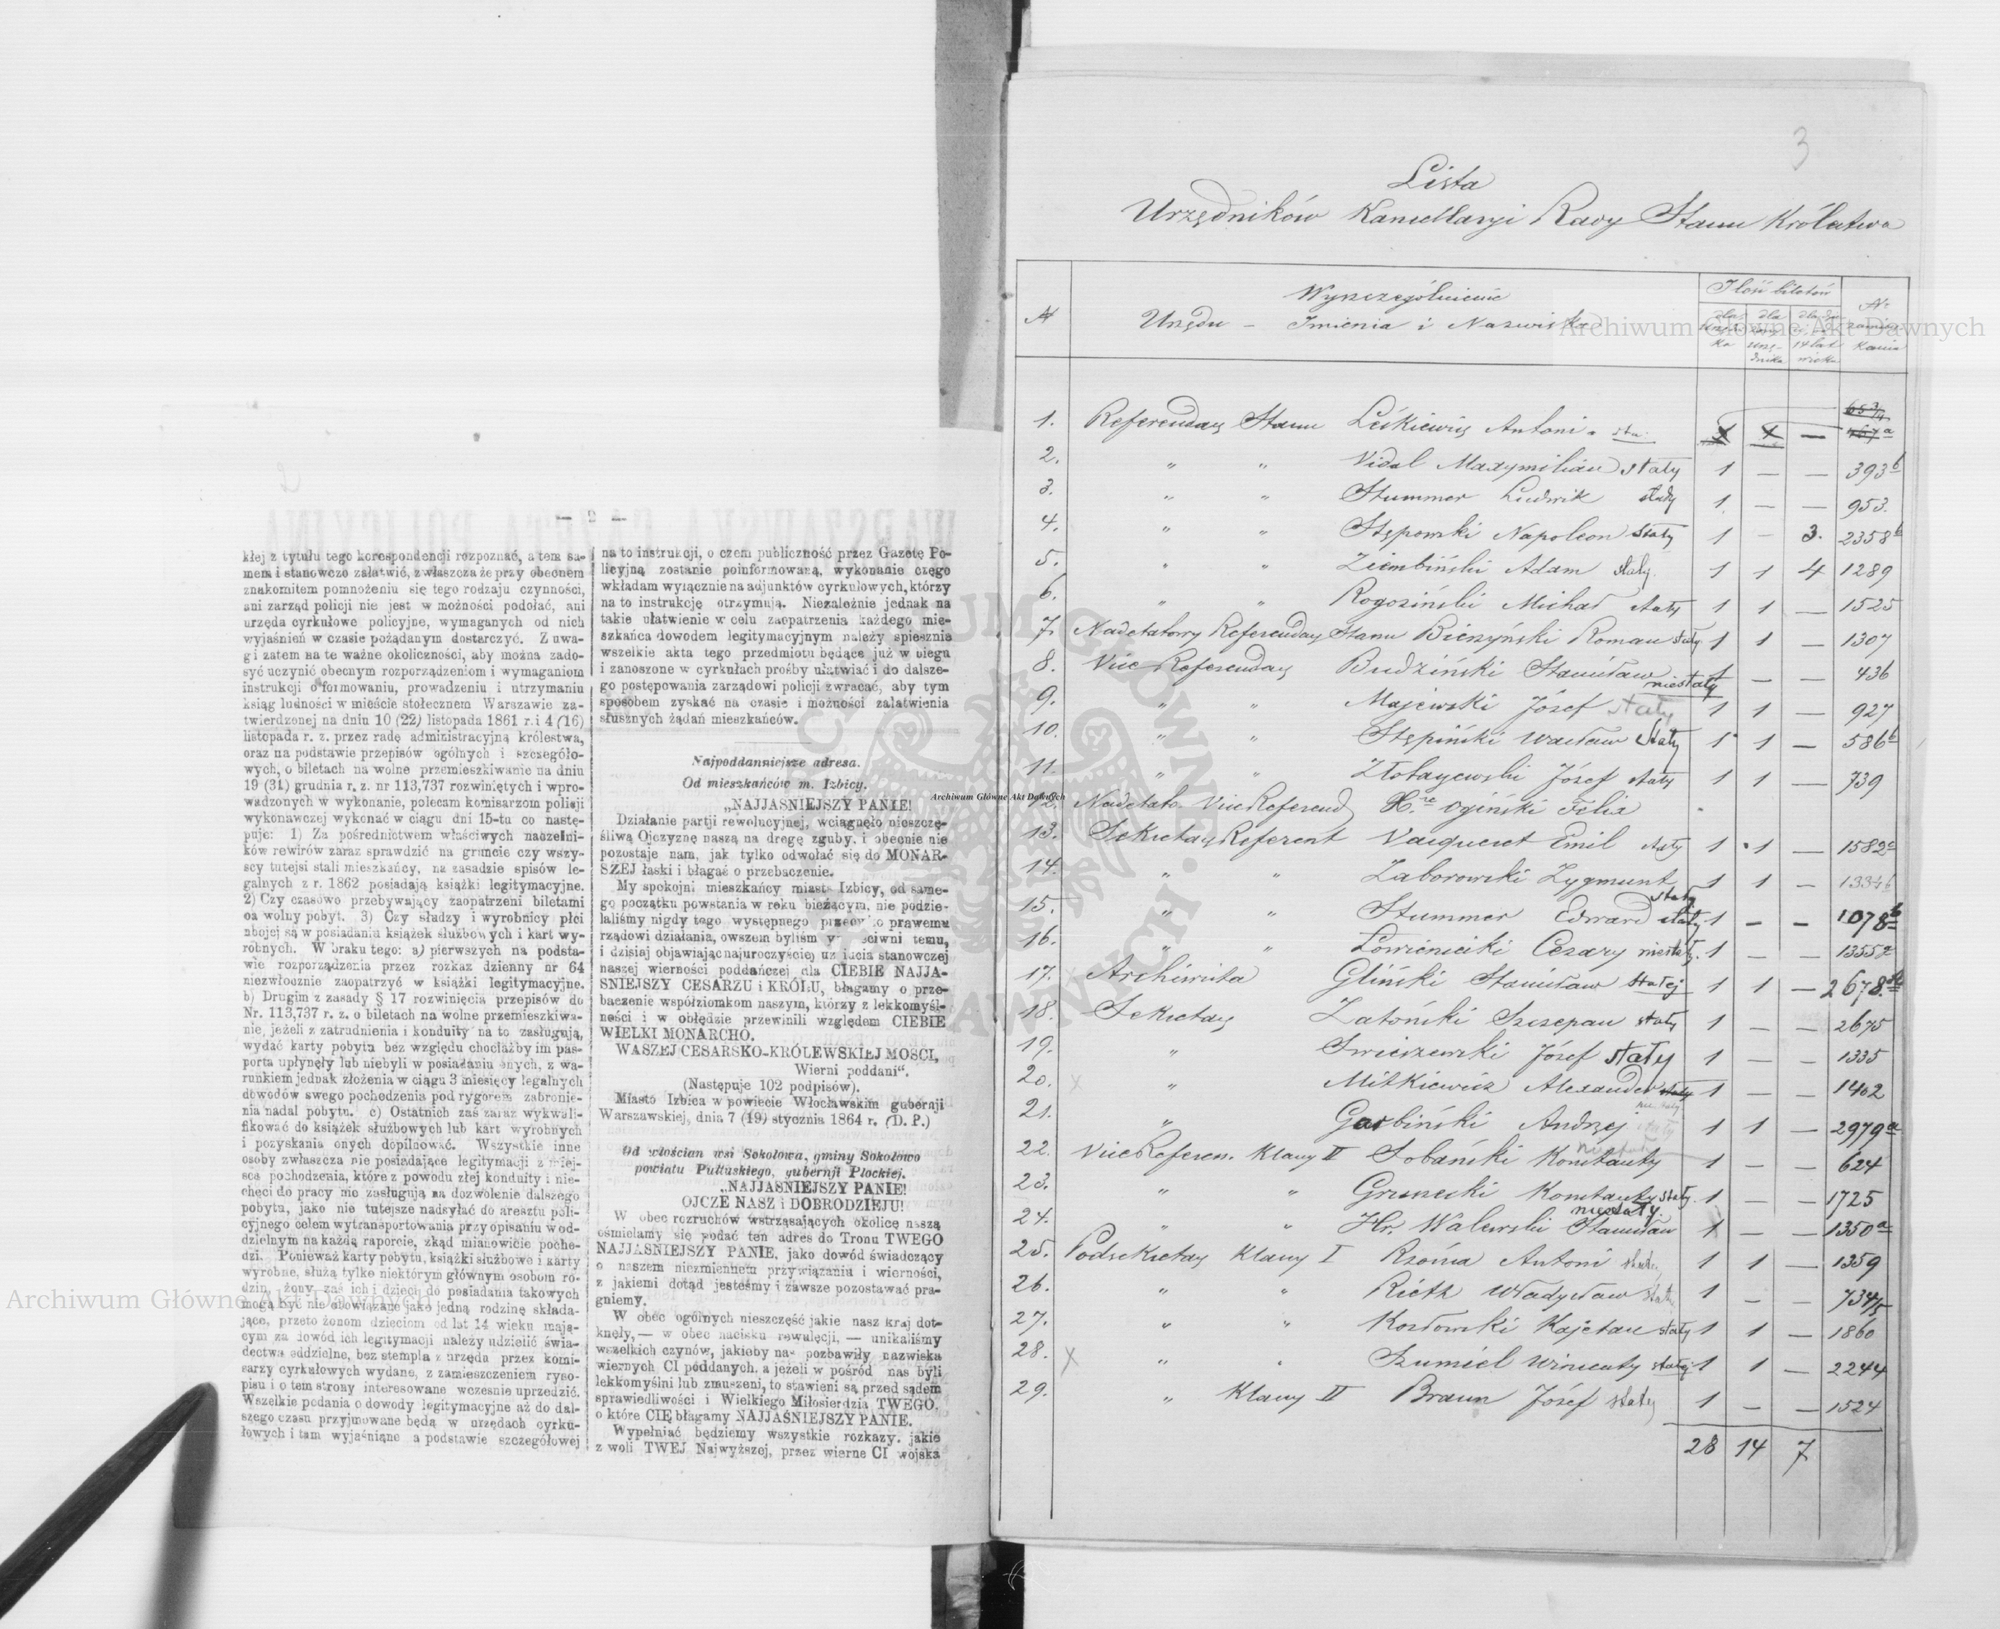 — 2 —
kłej z tytułu tego korespondencji rozpoznać, a tem sa-
mem i stanowczo załatwić, zwłaszcza że przy obecnem
znakomitem pomnożeniu się tego rodzaju czynności,
ani zarząd policji nie jest w możności podołać, ani
urzęda cyrkułowe policyjne, wymaganych od nich
wyjaśnień w czasie pożądanym dostarczyć. Z uwa-
gi zatem na te ważne okoliczności, aby można zado-
syć uczynić obecnym rozporządzeniom i wymaganiom
instrukcji o formowaniu, prowadzeniu i utrzymaniu
ksiąg ludności w mieście stołecznem Warszawie za-
twierdzonej na dniu 10 (22) listopada 1861 r. i 4 (16)
listopada r. z. przez radę administracyjną królestwa,
oraz na podstawie przepisów ogólnych i szczegóło-
wych, o biletach na wolne przemieszkiwanie na dniu
19 (31) grudnia r. z. nr 113,737 rozwiniętych i wpro-
wadzonych w wykonanie, polecam komisarzom policji
wykonawczej wykonać w ciągu dni 15-tu co nastę-
puje: 1) Za pośrednictwem właściwych naczelni-
ków rewirów zaraz sprawdzić na gruncie czy wszy-
scy tutejsi stali mieszkańcy, na zasadzie spisów le-
galnych z r. 1862 posiadają książki legitymacyjne.
2) Czy czasowo przebywający zaopatrzeni biletami
na wolny pobyt. 3) Czy słudzy i wyrobnicy płci
obojej są w posiadaniu książek służbowych i kart wy-
robnych. W braku tego: a) pierwszych na podsta-
wie rozporządzenia przez rozkaz dzienny nr 64
niezwłocznie zaopatrzyć w książki legitymacyjne.
b) Drugim z zasady § 17 rozwinięcia przepisów do
Nr. 113,737 r. z. o biletach na wolne przemieszkiwa-
nie, jeżeli z zatrudnienia i konduity na to zasługują,
wydać karty pobytu bez względu chociażby im pas-
porta upłynęły lub niebyli w posiadaniu onych, z wa-
runkiem jednak złożenia w ciągu 3 miesięcy legalnych
dowodów swego pochodzenia pod rygorem zabronie-
nia nadal pobytu. c) Ostatnich zaś zaraz wykwali-
fikować do książek służbowych lub kart wyrobnych
i pozyskania onych dopilnować. Wszystkie inne
osoby zwłaszcza nie posiadające legitymacji z miej-
sca pochodzenia, które z powodu złej konduity i nie-
chęci do pracy nie zasługują na dozwolenie dalszego
pobytu, jako nie tutejsze nadsyłać do aresztu poli-
cyjnego celem wytransportowania przy opisaniu w od-
dzielnym na każdą raporcie, zkąd mianowicie pocho-
dzi. Ponieważ karty pobytu, książki służbowe i karty
wyrobne, służą tylko niektórym głównym osobom ro-
dzin, żony zaś ich i dzieci do posiadania takowych
mogą być nie obowiązane jako jedną rodzinę składa-
jące, przeto żonom dzieciom od lat 14 wieku mają-
cym za dowód ich legitymacji należy udzielić świa-
dectwa oddzielne, bez stempla z urzędu przez komi-
sarzy cyrkułowych wydane, z zamieszczeniem ryso-
pisu i o tem strony interesowane wcześnie uprzedzić.
Wszelkie podania o dowody legitymacyjne aż do dal-
szego czasu przyjmowane będą w urzędach cyrku-
łowych i tam wyjaśniane a podstawie szczegółowej
na to instrukcji, o czem publiczność przez Gazetę Po-
licyjną zostanie poinformowaną, wykonanie czego
wkładam wyłącznie na adjunktów cyrkułowych, którzy
na to instrukcję otrzymują. Niezależnie jednak na
takie ułatwienie w celu zaopatrzenia każdego mie-
szkańca dowodem legitymacyjnym należy spiesznie
wszelkie akta tego przedmiotu będące już w biegu
i zanoszone w cyrkułach prośby ułatwiać i do dalsze-
go postępowania zarządowi policji zwracać, aby tym
sposobem zyskać na czasie i możności załatwienia
słusznych żądań mieszkańców.
Najpoddanniejsze adresa.
Od mieszkańców m. Izbicy.
„NAJJAŚNIEJSZY PANIE!
Działanie partji rewolucyjnej, wciągnęło nieszczę-
śliwą Ojczyznę naszą na drogę zguby, i obecnie nie
pozostaje nam, jak tylko odwołać się do MONAR-
SZEJ łaski i błagać o przebaczenie.
My spokojni mieszkańcy miasta Izbicy, od same-
go początku powstania w roku bieżącym, nie podzie-
laliśmy nigdy tego występnego przeciwko prawemu
rządowi działania, owszem byliśmy przeciwni temu,
i dzisiaj objawiając najuroczyściej uczucia stanowczej
naszej wierności poddańczej dla CIEBIE NAJJA-
ŚNIEJSZY CESARZU i KRÓLU, błagamy o prze-
baczenie współziomkom naszym, którzy z lekkomyśl-
ności i w obłędzie przewinili względem CIEBIE
WIELKI MONARCHO.
WASZEJ CESARSKO-KRÓLEWSKIEJ MOŚCI,
Wierni poddani“.
(Następuje 102 podpisów).
Miasto Izbica w powiecie Włocławskim gubernji
Warszawskiej, dnia 7 (19) stycznia 1864 r. (D. P.)
Od włościan wsi Sokołowa, gminy Sokołowo
powiatu Pułtuskiego, gubernji Płockiej.
„NAJJAŚNIEJSZY PANIE!
OJCZE NASZ i DOBRODZIEJU!
W obec rozruchów wstrząsających okolicę naszą
ośmielamy się podać ten adres do Tronu TWEGO
NAJJAŚNIEJSZY PANIE, jako dowód świadczący
o naszem niezmiennem przywiązaniu i wierności,
z jakiemi dotąd jesteśmy i zawsze pozostawać pra-
gniemy.
W obec ogólnych nieszczęść jakie nasz kraj dot-
knęły, — w obec nacisku rewolucji, — unikaliśmy
wszelkich czynów, jakieby nas pozbawiły nazwiska
wiernych CI poddanych, a jeżeli w pośród nas byli
lekkomyślni lub zmuszeni, to stawieni są przed sądem
sprawiedliwości i Wielkiego Miłosierdzia TWEGO,
o które CIĘ błagamy NAJJAŚNIEJSZY PANIE.
Wypełniać będziemy wszystkie rozkazy, jakie
z woli TWEJ Najwyższej, przez wierne CI wojska
3
Lista
Urzędników Kancellaryi Rady Stanu Królestwa
№ Wyszczególnienie Urzędu – Imienia i Nazwiska Ilość biletów
1. Referendarz Stanu Leśkiewicz Antoni
2. " " Vidal Maxymilian stały 1 — — 393b
3. " " Stummer Ludwik stały 1 — — 953
4. " " Stępowski Napoleon stały 1 — 3. 2358b
5. " " Ziembiński Adam stały 1 1 4 1289
6. " " Rogoziński Michał stały 1 1 — 1525
7. Nadetatowy Referendarz Stanu Bierzyński Roman stały 1 1 — 1307
8. Vice Referendarz Budziński Stanisław niestały 1 — — 436
9. " " Majewski Józef stały 1 1 — 927
10. " " Stępiński Wacław stały 1 1 — 586b
11. " " Złotayewski Józef stały 1 1 — 739
12. Nadetato. Vice Referend. X.że Ogiński Felix
13. Sekretarz Referent Vaiqueret Emil stały 1 1 — 1582a
14. " " Zaborowski Zygmunt stały 1 1 — 1334b
15. " " Stummer Edward stały 1 — — 1078b
16. " " Łowieniecki Cezary niestały 1 — — 1355a
17. Archiwista Gliński Stanisław stałej 1 1 — 2678
18. Sekretarz Zatoński Szczepan stały 1 — — 2675
19. " Swieszewski Józef stały 1 — — 1335
20. " Mitkiewicz Alexander stały 1 — — 1402
nie stały
21. " Garbiński Andrzej stały 1 1 — 2979a
22. Vice Referen. Klassy II Sobański Konstanty niestały 1 — — 624
23. " " Grunecki Konstanty stały 1 — — 1725
24. " " Hr. Walewski Stanisław niestały 1 — — 1350a
25. Podsekretarz Klassy I Rzońca Antoni stały 1 1 — 1359
26. " " Rieth Władysław stały 1 — — 734/5
27. " " Kozłowski Kajetan stały 1 1 — 1860
28. " " Szumiel Wincenty stały 1 1 — 2244
29. " Klassy II Braun Józef stały 1 — — 1524
28 14 7
Archiwum Główne Akt Dawnych
Archiwum Główne Akt Dawnych
Archiwum Główne Akt Dawnych